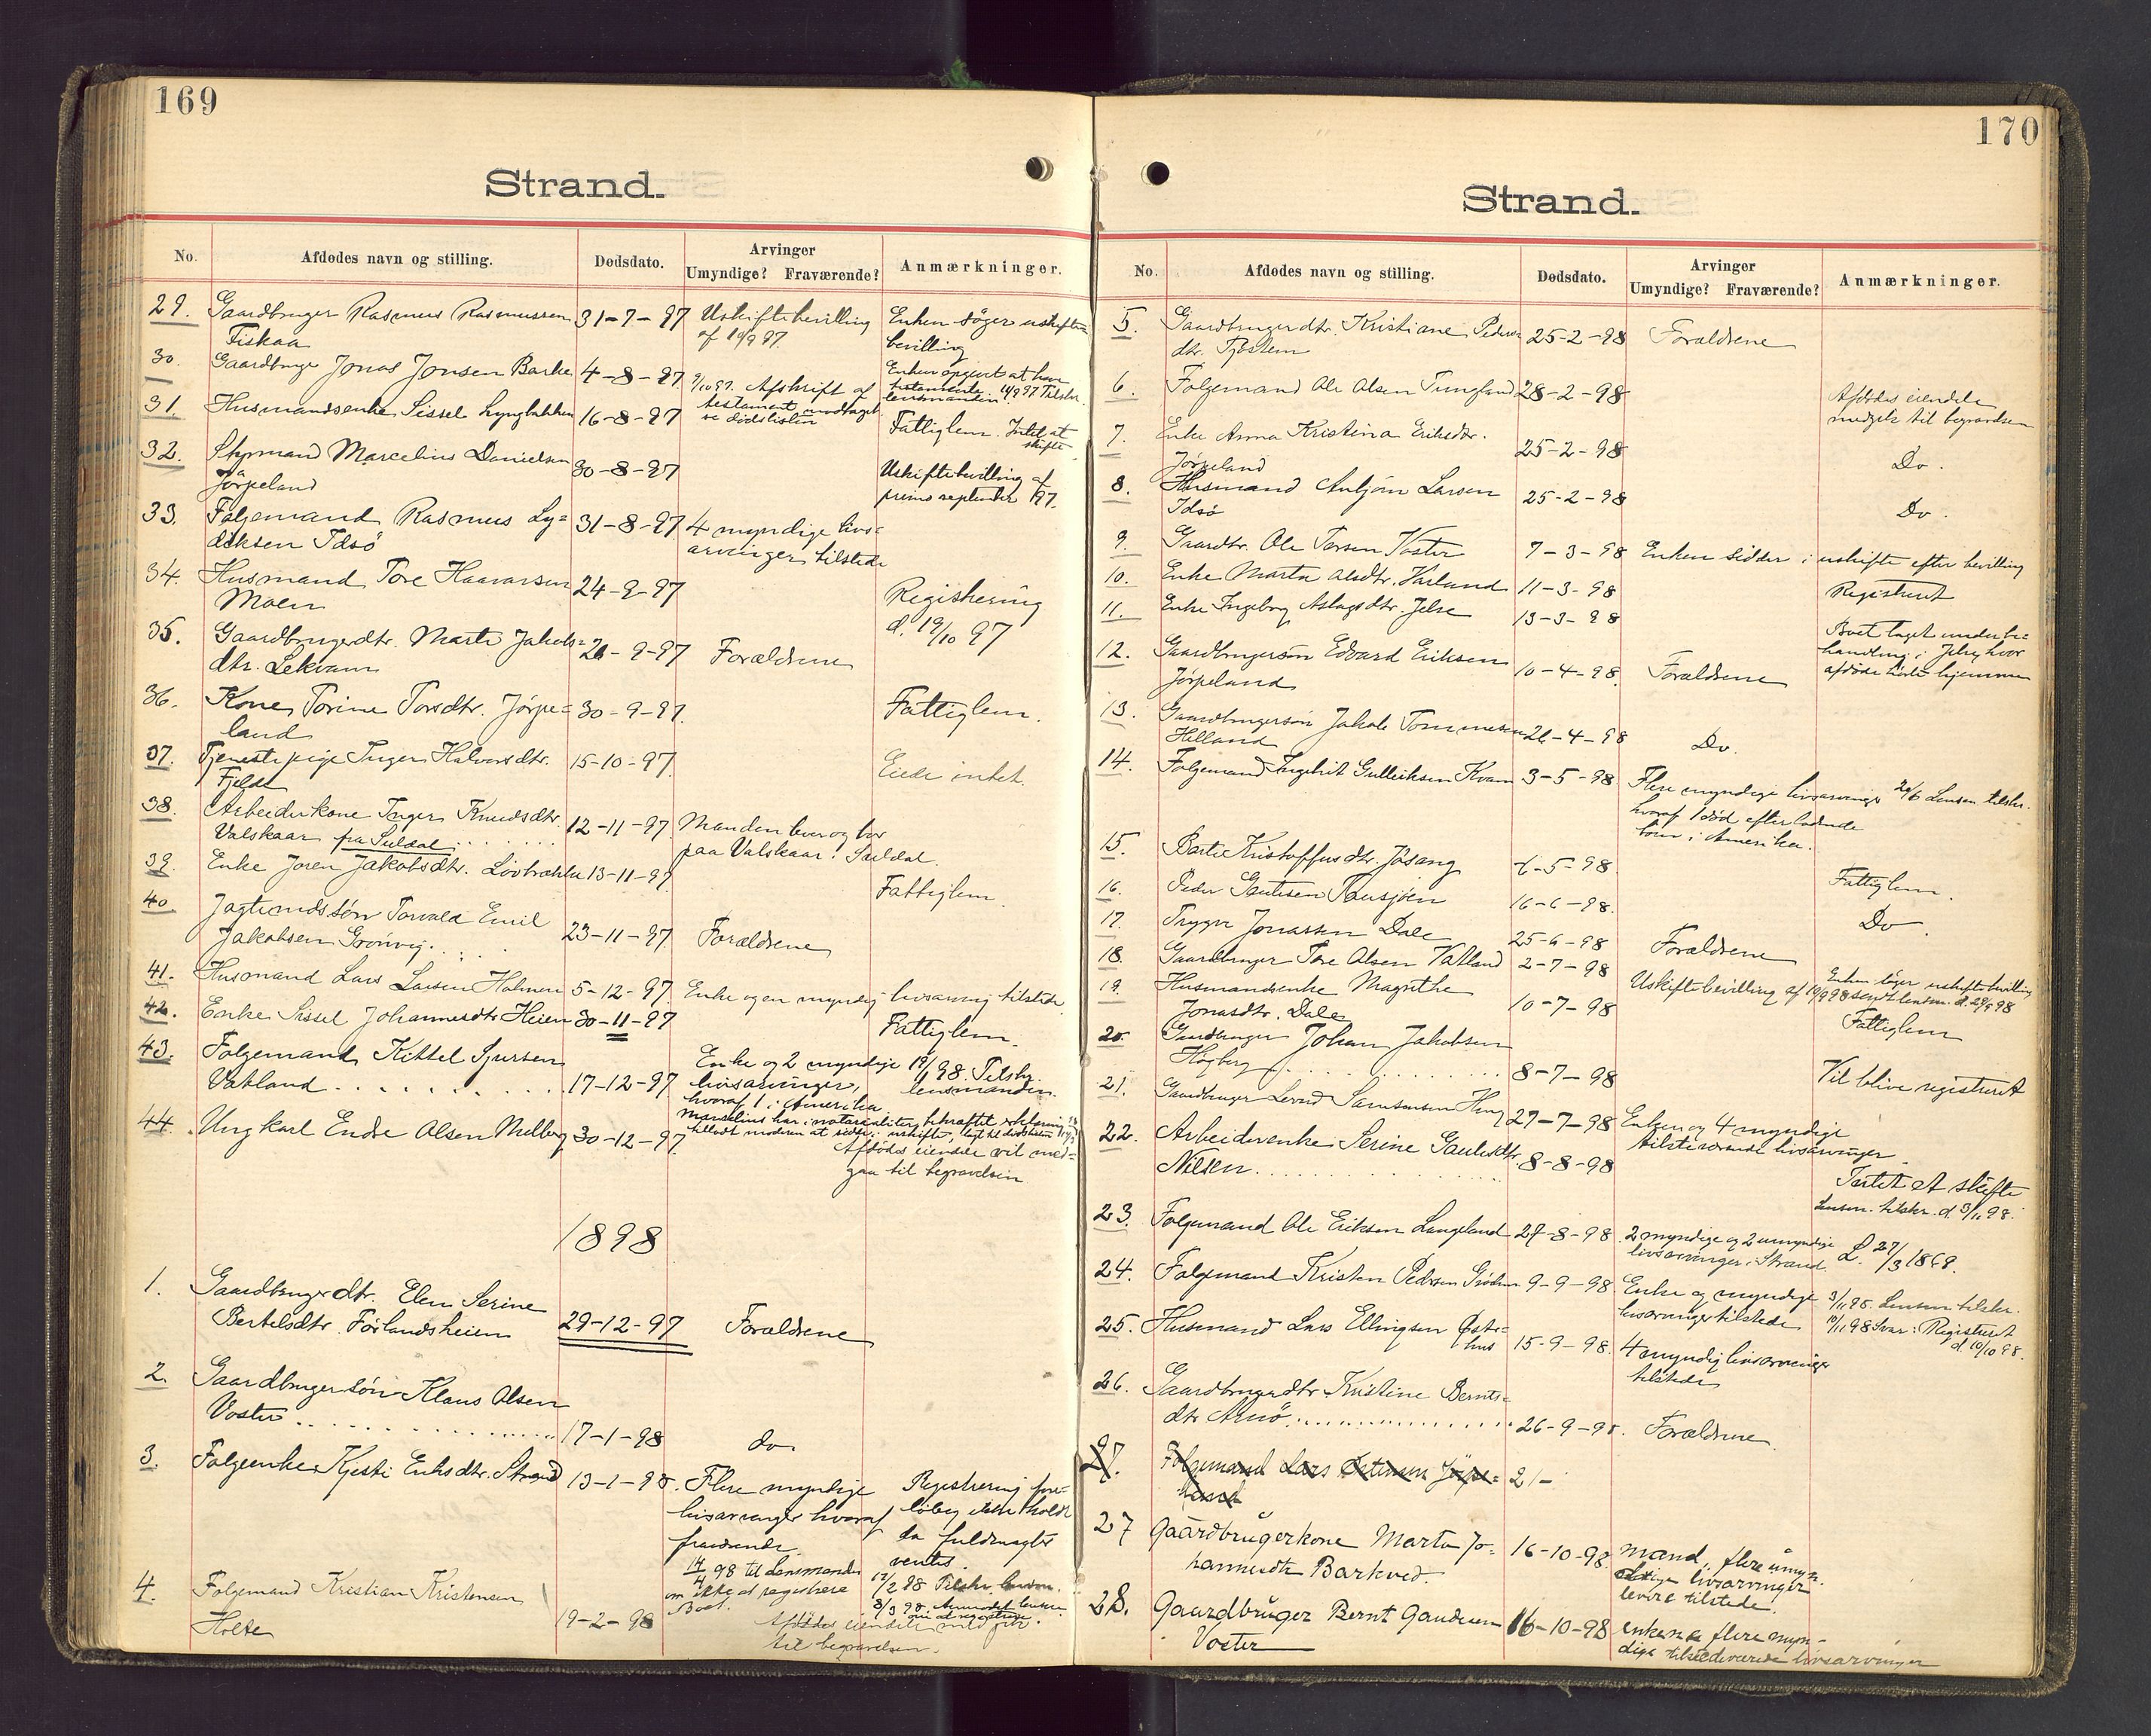 169
Strand.
No. Afdødes navn og stilling. Dødsdato. Arvinger Umyndige? Fraværende? Anmærkninger.
29. Gaardbruger Rasmus Rasmussen 31-7-97 Uskiftebevilling Enken søger uskifte
Fiskaa af 14/9 97. bevilling
30. Gaardbruger Jonas Jonsen Barke 4-8-97 9/10 97. Afskrift af Enken opgivet at have
testament modtaget testamente 14/9 97 Tilskr. lensmanden
se dødslisten
31. Husmandsenke Sissel Lyngbakken 16-8-97 Fattiglem. Intet at
skifte
32. Styrmand Marcelius Danielsen 30-8-97 Uskiftebevilling af
Jørpeland primo september 97.
33. Følgemand Rasmus Ly= 31-8-97 4 myndige livs=
diksen Idsö arvinger tilstede
34. Husmand Tore Haavarsen 24-9-97 Registrering
Moen d. 19/10 97
35. Gaardbrugerdtr. Marte Jakobs= 21-9-97 Forældrene
dtr. Lekvam
36. Kone Torine Torsdtr. Jørpe= 30-9-97. Fattiglem.
land
37. Tjenestepige Inger Halvorsdtr. 15-10-97. Eiede intet.
Fjelde
38. Arbeiderkone Inger Knudsdtr. 12-11-97 Manden lever og bor
Valskaar fra Suldal paa Valskaar i Suldal.
39. Enke Joren Jakobsdtr. Løvbrække 13-11-97 Fattiglem.
40. Jagtmandssøn Torvald Emil
Jakobsen Grønvig. 23-11-97 Forældrene
41. Husmand Lars Larsen Holmen 5-12-97. Enke og en myndig livsarving tilstede.
42. Enke Sissel Johannesdtr Heien 30-11-97 Fattiglem.
43. Følgemand Kittel Sjursen Enke og 2 myndige 19/1 98. Tilskr.
Vatland 17-12-97 livsarvinger, lensmanden.
hvoraf 1 i Amerika
Marselius har i notarialiter bekræftet erklæring
tilladt moderen at sidde i uskifte, lagt til dødslisten
44. Ungkarl Endre Olsen Melberg 30-12-97. Afdødes eiendele vil med=
gaa til begravelsen
1898
1. Gaardbrugerdtr. Elen Serine
Bertelsdtr. Førlandsheien 29-12-97 Forældrene
2. Gaardbrugersøn Klaus Olsen
Voster 17-1-98 do.
3. Følgeenke Kjesti Eriksdtr. Strand 13-1-98. Flere myndige Registrering fore=
livsarvinger hvoraf løbig ikke holdt
fraværende. da fuldmagter
ventes.
14/4 98 til lensmanden 12/2 98 Tilskr. lensm.
om ikke at registrere 8/3 98. Anmodet lensm.
Boet. om at registrere.
4. Følgemand Kristian Kristensen
Holte 19-2-98 Afdødes eiendele medgik
til begravelsen.
170
Strand.
No. Afdødes navn og stilling. Dødsdato. Arvinger Umyndige? Fraværende? Anmærkninger.
5. Gaardbrugerdtr. Kristiane Peders= 25-2-98 Forældrene
dtr. Tjøstem
6. Følgemand Ole Olsen Tungland 28-2-98 Afdødes eiendele
medgik til begravelsen
7. Enke Anna Kristina Eriksdtr.
Jørpeland 25-2-98 Do.
8. Husmand Anbjørn Larsen 25-2-98
Idsö Do.
9. Gaardbr. Ole Torsen Voster 7-3-98 Enken sidder i uskifte efter bevilling
10. Enke Marta Olsdtr. Varland 11-3-98 Registreret
11. Enke Ingeborg Aslagsdtr. Jelse 13-3-98 Boet taget under be=
handling i Jelse, hvor
afdøde hørte hjemme
12. Gaardbrugersøn Edvard Eriksen 10-4-98. Forældrene
Jørpeland
13. Gaardbrugersøn Jakob Tommesen 26-4-98 Do.
Helland
14. Følgemand Ingebrit Gulleiksen Kvam 3-5-98 Flere myndige livsarvinger 20/6 Lensm. tilskr.
hvoraf 1 død efterladende
børn i Amerika.
15. Berte Kristoffersdtr. Jøsang 6-5-98. Fattiglem.
16. Peder Gautesen Tausjøen 16-6-98. Do.
17. Trygve Jonassen Dale 25-6-98 Forældrene
18. Gaardbruger Tore Olsen Vatland 2-7-98 Uskiftebevilling af 19/9 98 Enken søger uskiftebevilling
sendt lensm. d. 29/9 98
19. Husmandsenke Magrethe
Jonasdtr. Dale 10-7-98 Fattiglem
20. Gaardbruger Johan Jakobsen
Høgberg 8-7-98 Vil blive registreret
21. Gaardbruger Levard Samsonsen Heng 27-7-98 Enken og 4 myndige
tilstedeværende livsarvinger.
22. Arbeiderenke Serine Gautesdtr. 8-8-98
Nilsen Intet at skifte
Lensm. tilskr. d. 3/11 98.
23. Følgemand Ole Eriksen Langeland 27-8-98. 2 myndige og 2 umyndige L. 27/3 1869.
livsarvinger i Strand.
24. Følgemand Kristen Pedersen Grødem 9-9-98. Enke og myndige 3/11 98. Lensm. tilskr.
livsarvinger tilstede 10/11 98 Svar: Registreret
d. 19/10 98.
25. Husmand Lars Ellingsen Øste=
hus 15-9-98. 4 myndig livsarvinger
tilstede
26. Gaardbrugerdtr Kristine Bernts=
dtr Arnö 26-9-98. Forældrene.
27. Følgemand Lars Østensen Jørpe= 21-
land
27 Gaardbrugerkone Marta Jo= 16-10-98. mand, flere umyn.
hannesdtr Barkved. dige livsarvinger
tilstede.
28. Gaardbruger Bernt Gaudesen 16-10-98 enken & flere myn-
Voster dige tilstedeværende livsarvinger